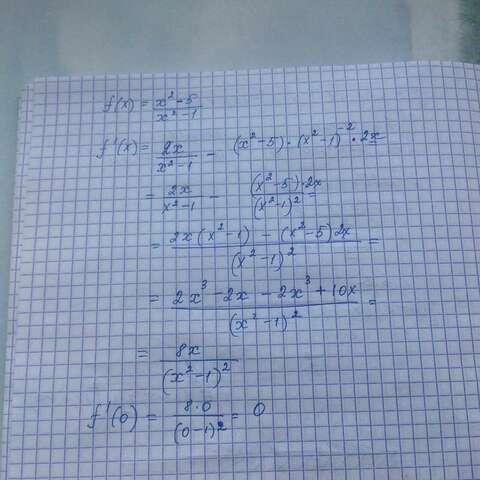 f(x) = (x² - 5)/(x² - 1)
f'(x) = 2x/(x² - 1) - (x² - 5) · (x² - 1)⁻² · 2x
= 2x/(x² - 1) - (x² - 5) · 2x/(x² - 1)² =
= (2x(x² - 1) - (x² - 5)2x)/(x² - 1)² =
= (2x³ - 2x - 2x³ + 10x)/(x² - 1)² =
= 8x/(x² - 1)²
f'(0) = (8 · 0)/(0 - 1)² = 0